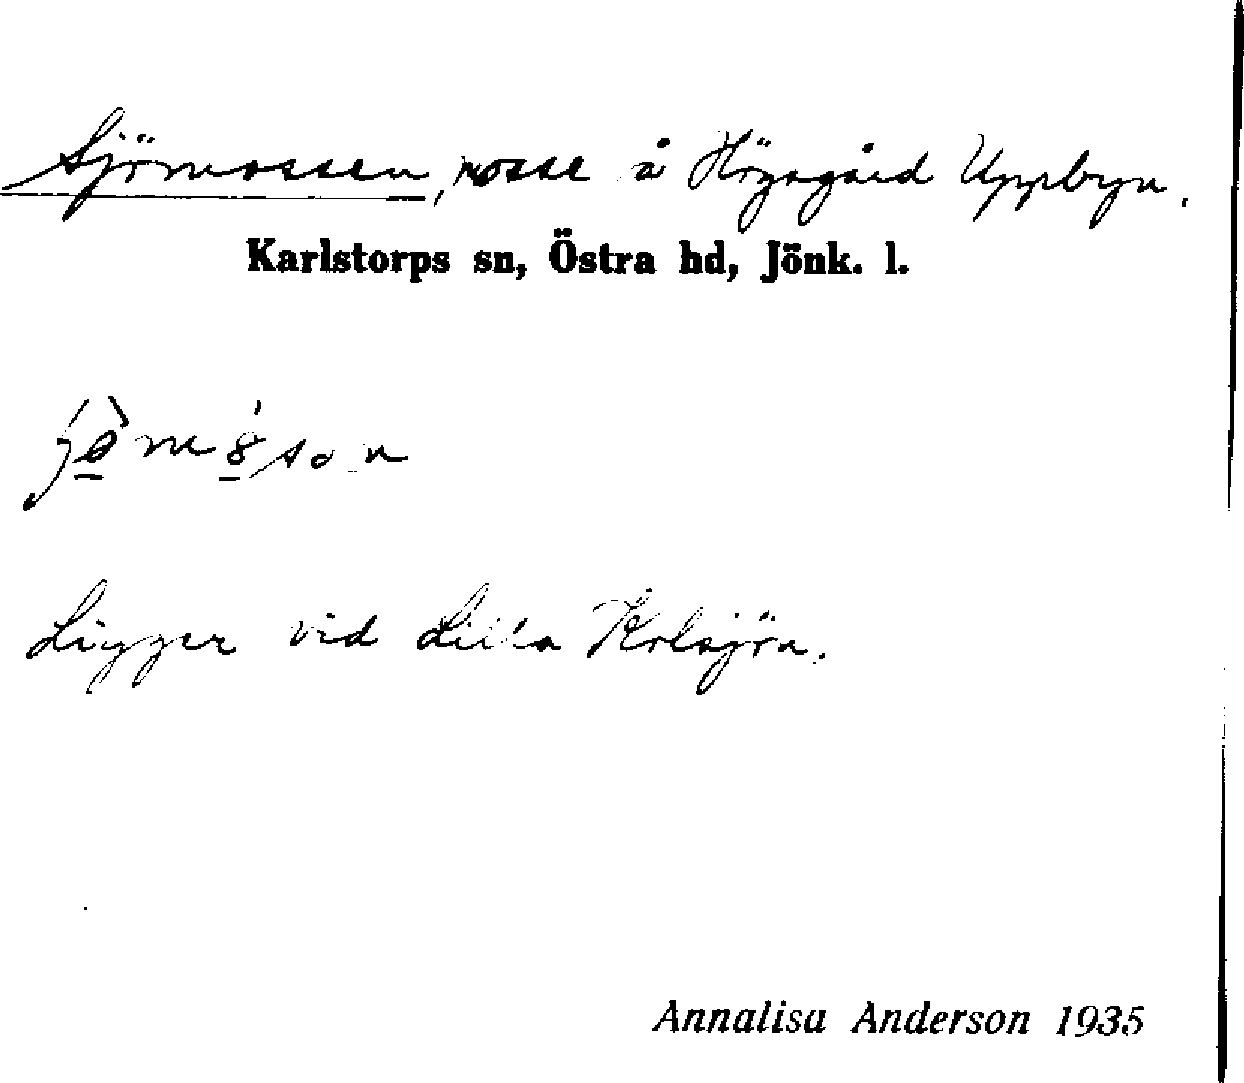 Sjömossen, mosse å Högagård Uppbyn.
Karlstorps sn, Östra hd, Jönk. l.
Ligger vid Lilla Kolsjön.
Annalisa Anderson 1935